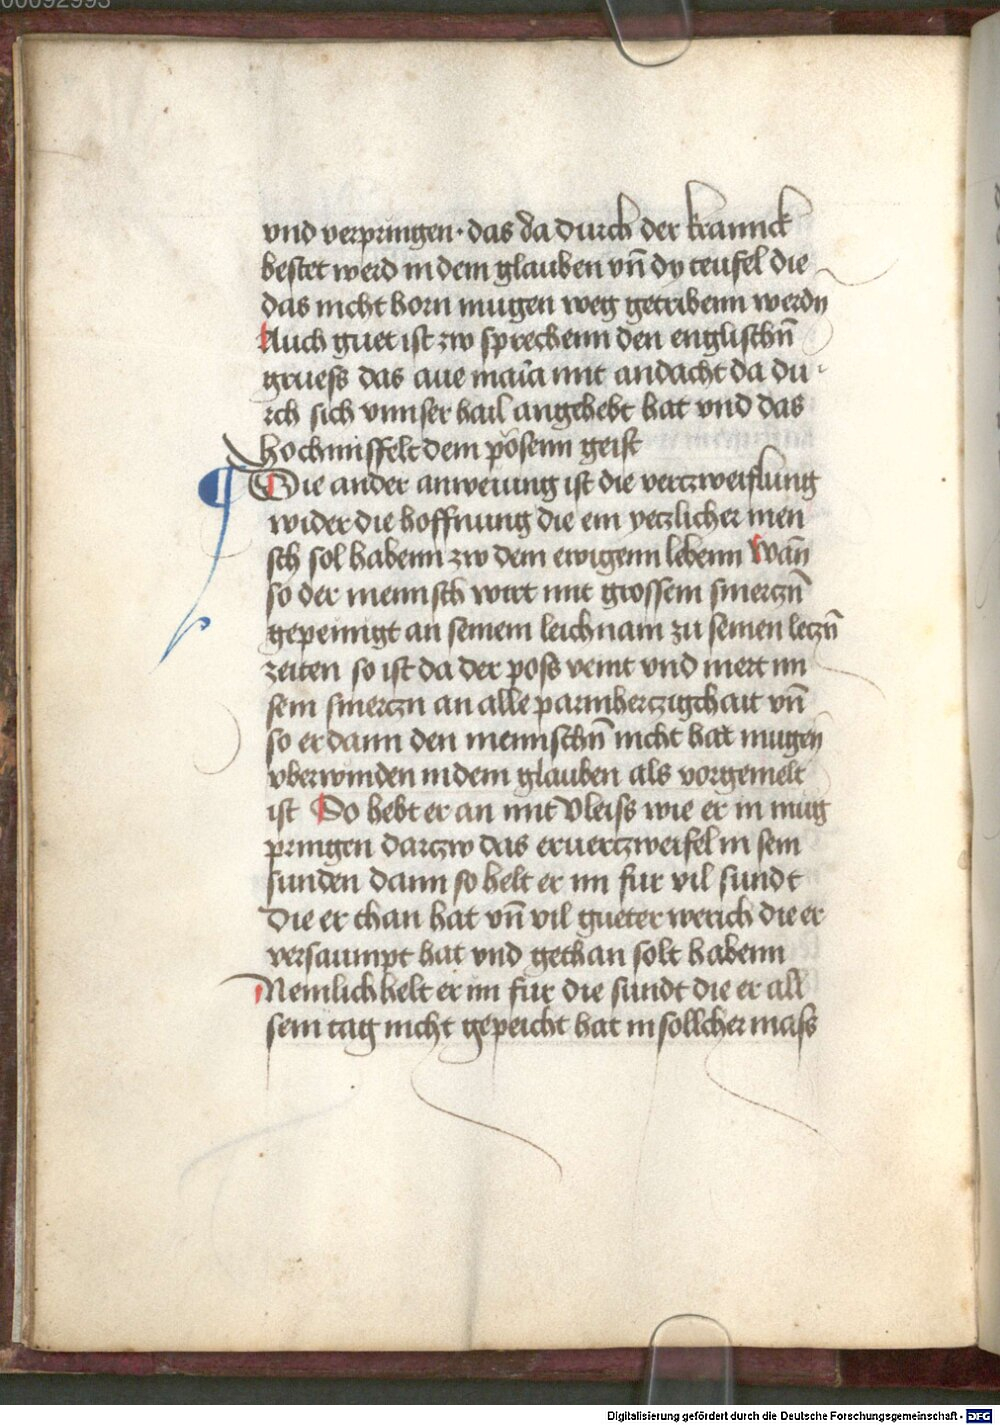 00092993
vnd verpringen · das da durch der krannck
bestet werd in dem glauben vn̄ dy teufel die
das nicht horn mugen weg getribenn werdn
Auch guet ist zw sprechenn den englischn̄
gruess das aue maria mit andacht da du-
rch sich vnnser hail angehebt hat vnd das
hochmissfelt dem posenn geist
¶ Die ander anweiung ist die verczweiflung
wider die hoffnung die ein yeczlicher men
sch sol habenn zw dem ewigenn lebenn Wan̄
so der mennsch wirt mit grossem smerczn̄
gepeinigt an seinem leichnam zu seinen leczn̄
zeiten so ist da der poss veint vnd mert im
sein smerczn an alle parmherczigchait vn̄
so er dann den mennschn̄ nicht hat mugen
vberwinden in dem glauben als vorgemelt
ist So hebt er an mit vleiss wie er in mug
pringen darczw das er verczweifel in sein
sunden dann so helt er im fur vil sundt
die er than hat vn̄ vil gueter werich die er
versaumpt hat vnd gethan solt habenn
Nemlich helt er im fur die sundt die er all
sein tag nicht gepeicht hat in sollicher mass
Digitalisierung gefördert durch die Deutsche Forschungsgemeinschaft - DFG